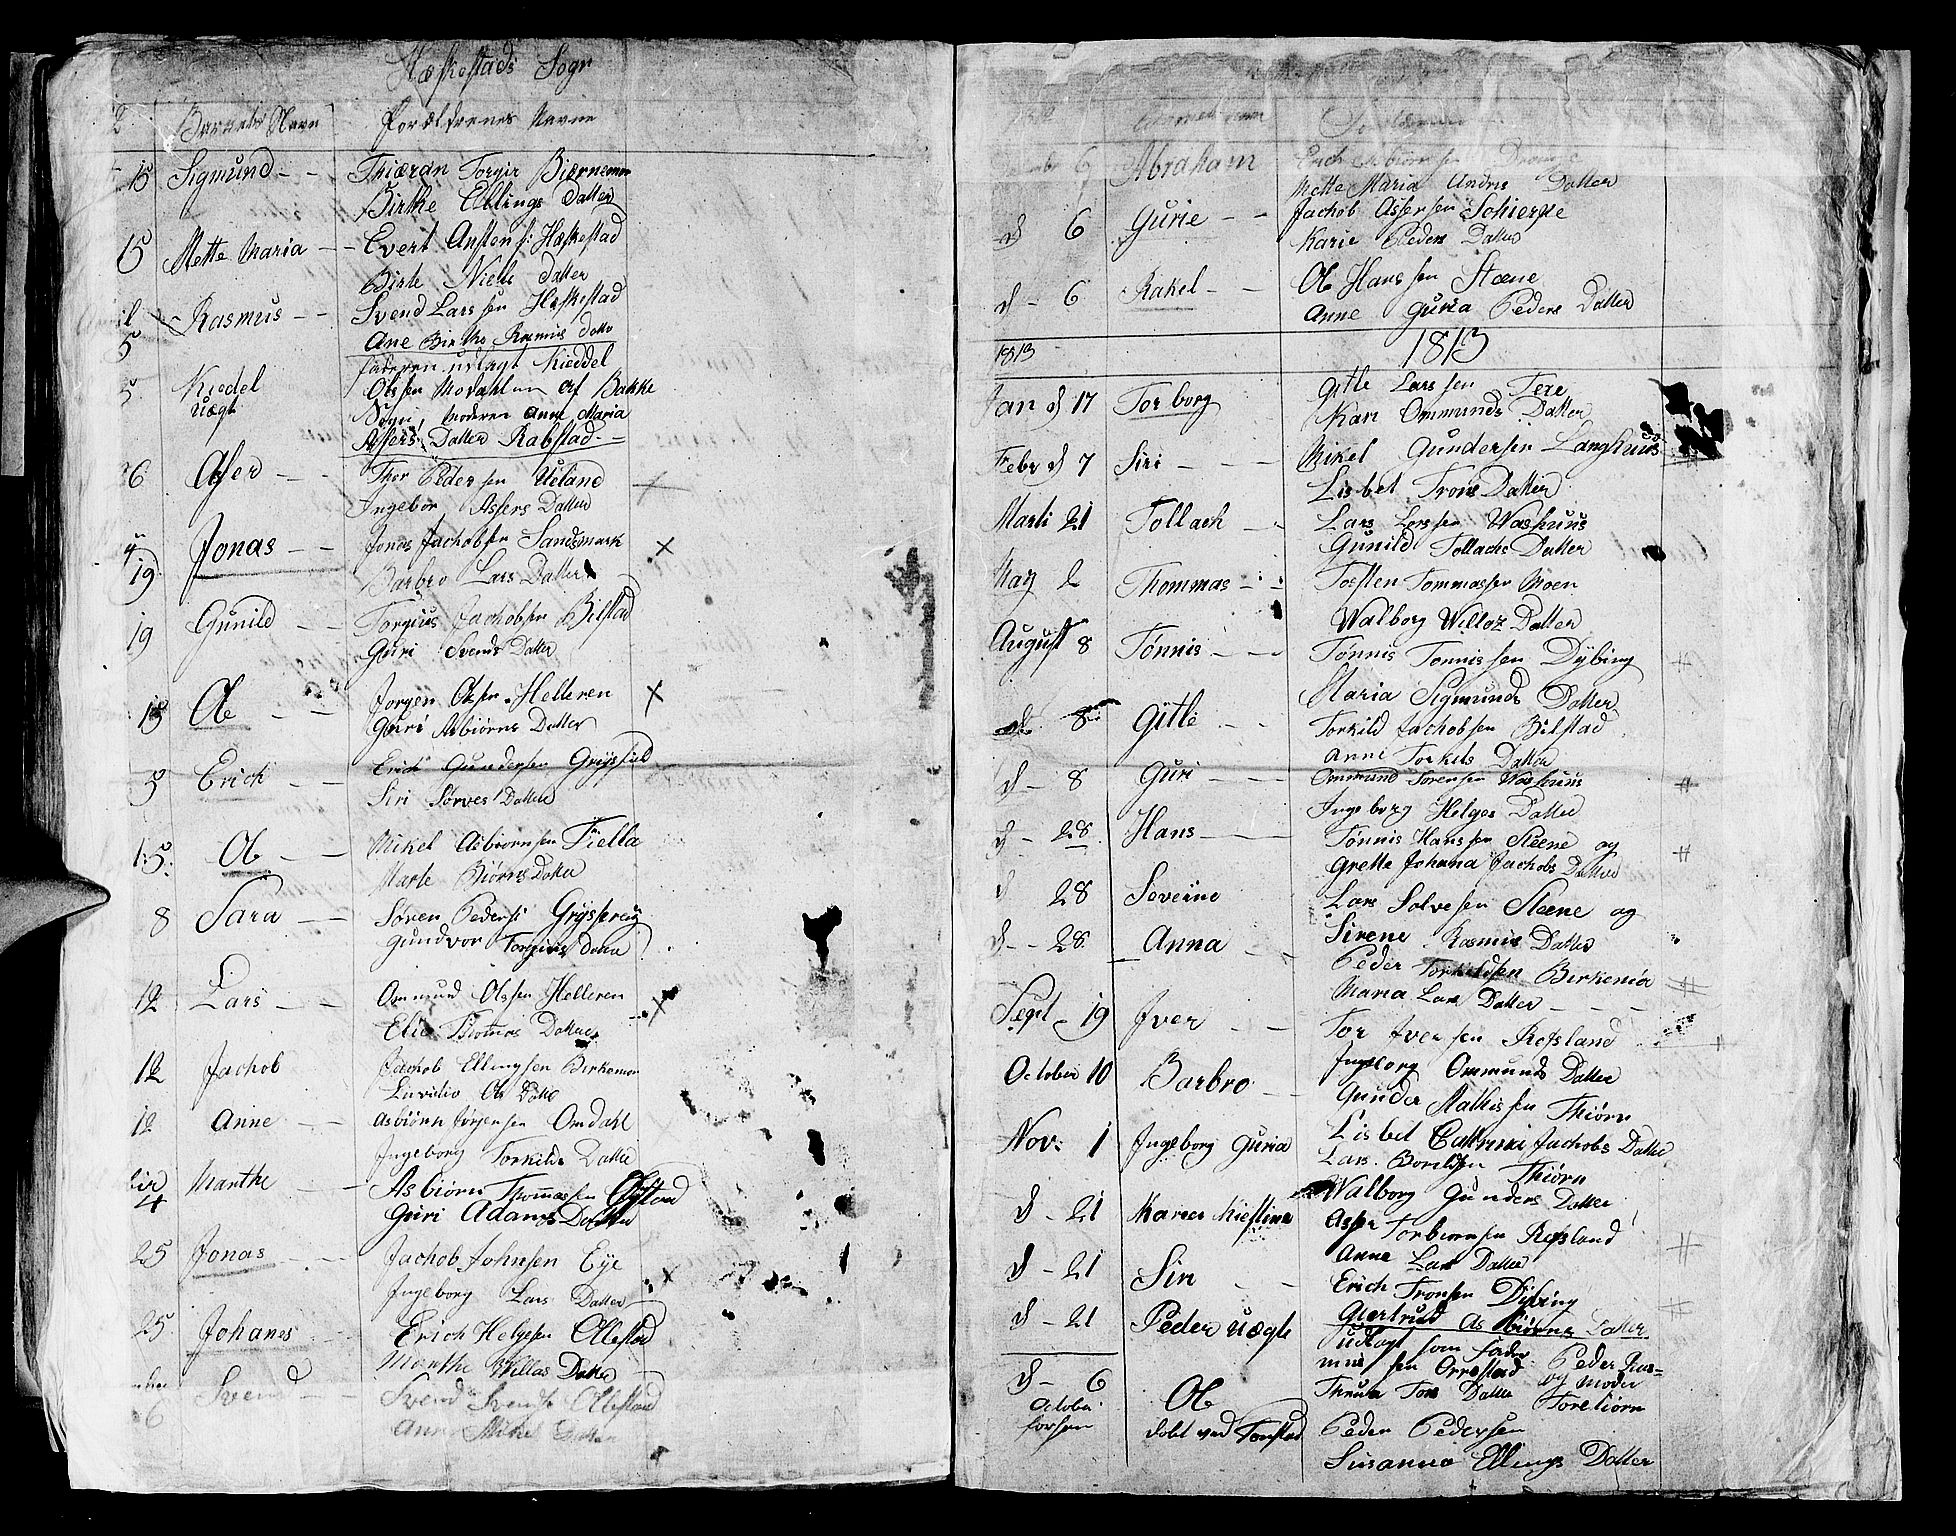 Hæskestads Sogn
2 Barnets Navn Forældrenes Navne
15 Sigmund Thiæran Torgir
Birthe Ellings Datter
15 Mette Maria Evert Austens: Hæskestad
Birte Niels Datter
April Rasmus Svend Larssen Hæskestad
5 Ane Birthe Rasmus Datter
faderen udlagt Kieddel
5 Kiedel Olssen Modahlen af Bakke
uægt Sogn, moderen Anne Maria
Assers Datter Rabstad
26 Aser Thor Pedersen Ueland
Ingebor Assers Datter
19 Jonas Jonas Jachobsen Sandsmark
Barbro Lars Datter
19 Gunild Torgius Jachobsen Bilstad
Guri Svends Datter
19 Ole Jørgen Olsen Helleren
Guri Asbiørns Datter
5 Erich Erich Gundersen
Siri Datter
15 Ole Mikel Asbiørnsen Fiella
Marte Biørns Datter
8 Sara Søren Peders:
Gundvor Torgius Datter
12 Lars Ommund Olssen Helleren
Elie Thomas Datter
12 Jachob Jachob Ellingsen Birkemoe
Ols Datter
12 Anne Asbiørn Jørgensen Omdahl
Ingeborg Torkilds Datter
4 Marthe Asbiørn Thomassen
Guri Adams Datter
25 Jonas Jachob Johnsen Eye
Ingeborg Lars Datter
25 Johanes Erich Helgesen Ollestad
Marthe Villas Datter
6 Svend Svend Svends Ollestad
Anne Mikels Datter
1812
6 Abraham Erich Asbiørnsen
Mette Maria Andrs Datter
d 6 Gurie Jachob Assersen Schierpe
Karie Peders Datter
d - 6 Rakel Ole Hanssen Steene
Anne Guria Peders Datter
1813 1813
Jan d 17 Torborg Gitle Larssen
Kari Ommunds Datter
Febr d 7 Siri Mikel Gundersen Langhuus
Lisbet Trons Datter
Marti 21 Tollach Lars Larssen Washuus
Gunild Tollachs Datter
May 2 Thommas Tosten Tommassen Moen
Walborg Datter
August 8 Tønnis Tønnis Tonnissen Dybing
Maria Sigmunds Datter
d. 8 Gitle Torkild Jachobsen Bilstad
Anne Torkels Datter
d - 8 Guri Ommund Sørensen Washuus
Ingeborg Helges Datter
d - 28 Hans Tønnis Hanssen Steene og
Grette Johana Jachobs Datter
d 28 Severine Lars Solvesen Steene og
d - 28 Anna Sirene Rasmus Datter
Peder Torkildsen Birkemoe
Maria Lars Datter
Sept - 19 Iver Tor Iversen Refsland
Ingeborg Ommunds Datter
October 10 Barbro Gunder Mathissen Thiørn
Lisbet Jachobs Datter
Nov: 1 Ingeborg Guria Lars Thiørn
Walborg Gunders Datter
d - 21 Karen Kiestine Asser Torbiornsen Refsland
Anne Lars Datter
d - 21 Siri Erich Tronsen Dybing
Giertrud Asbiørns Datter
d - 21 Peder uægte Udlagt som fader Peder Ras-
mussen Orrestad og moder
Tors Datter
d - 6 Ole
October Peder Pedersen
døbt ved Tonstad Susanna Ellings Datter